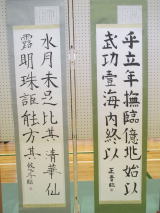 乎立年撫臨億兆始以
武功壹海內終以
水月未足比其清華仙
露明珠詎能方其